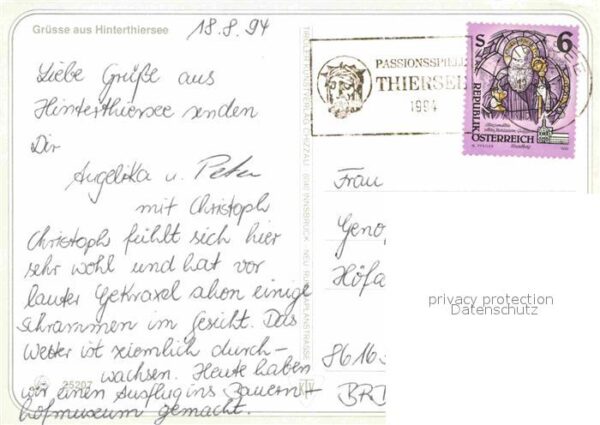 Grüsse aus Hinterthiersee
18.8.94
Liebe Grüße aus
Hinterthiersee senden
Dir
Angelika u. Peter
mit Christoph
Christoph fühlt sich hier
sehr wohl und hat vor
lauter Gekraxel schon einige
Schrammen im Gesicht. Das
Wetter ist ziemlich durch-
wachsen. Heute haben
wir einen Ausflug ins Bauern-
hofmuseum gemacht.
25207
PASSIONSSPIELE
THIERSEE
1994
S
6
REPUBLIK
ÖSTERREICH
Frau
Geno
Höfa
8616
BRD
privacy protection
Datenschutz